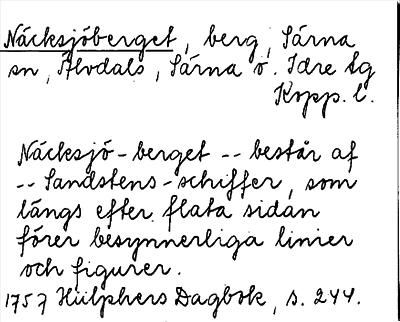 Näcksjöberget, berg, Särna
sn, Älvdals, Särna o. Idre tg
Kopp. l.
Näcksjö-berget -- består af
-- Sandstens-schiffer, som
längs efter flata sidan
förer besynnerliga linier
och figurer.
1757 Hülphers Dagbok, s. 244.